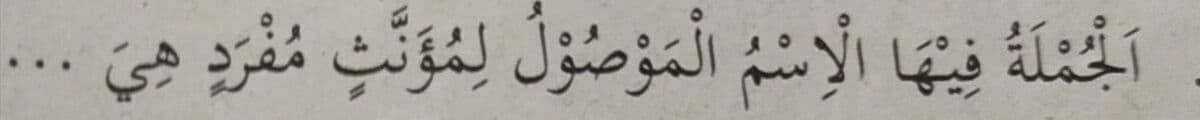 اَلْجُمْلَةُ فِيْهَا الْاِسْمُ الْمَوْصُوْلُ لِمُؤَنَّثٍ مُفْرَدٍ هِيَ ...